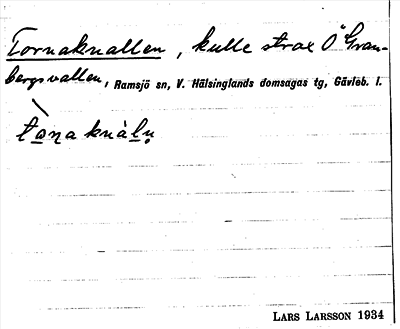 Tornaknallen, kulle strax Ö Gran-
bergsvallen, Ramsjö sn, V. Hälsinglands domsagas tg, Gävleb. l.
tɷṇa knàḷn̥
LARS LARSSON 1934